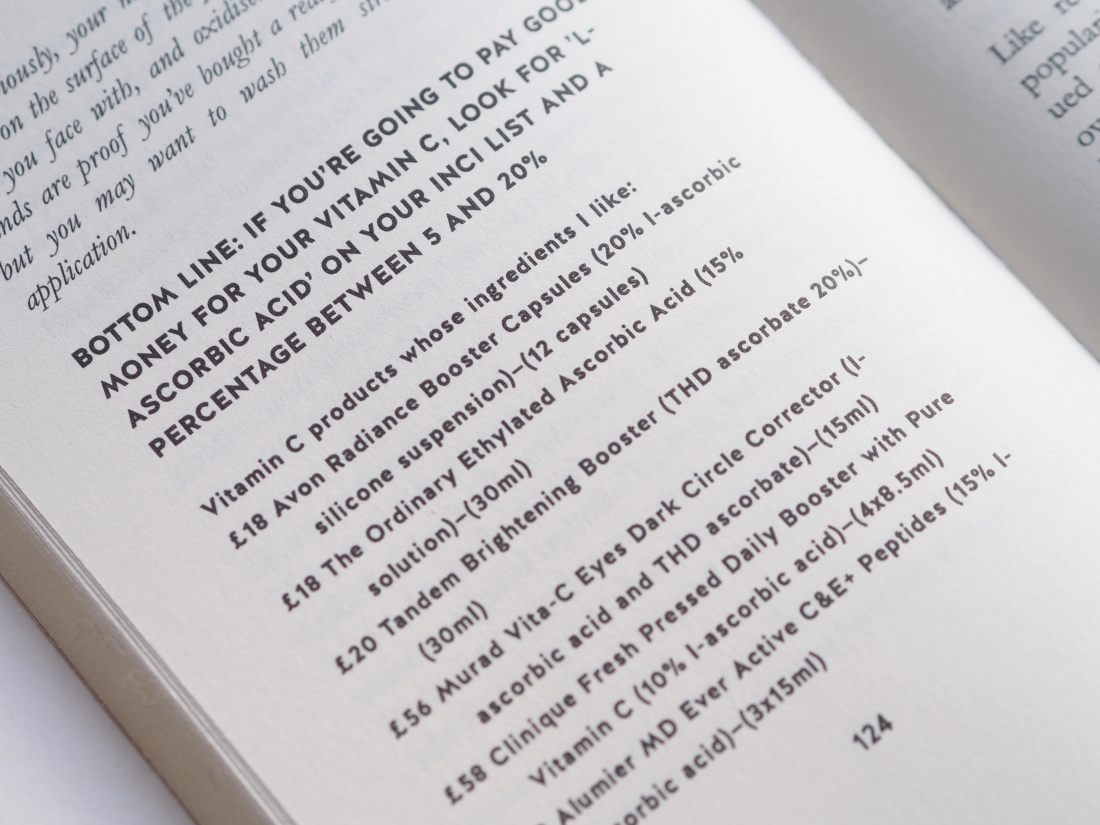 your
on the surface of the
you face with, and oxidised
are proof you've bought a
but you may want to wash them
application.
BOTTOM LINE: IF YOU'RE GOING TO PAY GOOD
MONEY FOR YOUR VITAMIN C, LOOK FOR 'L-
ASCORBIC ACID' ON YOUR INCI LIST AND A
PERCENTAGE BETWEEN 5 AND 20%
Vitamin C products whose ingredients I like:
£18 Avon Radiance Booster Capsules (20% l-ascorbic
silicone suspension)–(12 capsules)
£18 The Ordinary Ethylated Ascorbic Acid (15%
solution)–(30ml)
£20 Tandem Brightening Booster (THD ascorbate 20%)–
(30ml)
£56 Murad Vita-C Eyes Dark Circle Corrector (l-
ascorbic acid and THD ascorbate)–(15ml)
£58 Clinique Fresh Pressed Daily Booster with Pure
Vitamin C (10% l-ascorbic acid)–(4x8.5ml)
Alumier MD Ever Active C&E+ Peptides (15% l-
acid)–(3x15ml)
124
Like